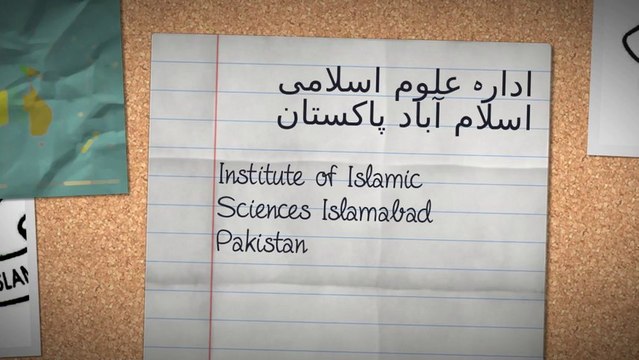 اداره علوم اسلامی
اسلام آباد پاکستان
Institute of Islamic
Sciences Islamabad
Pakistan